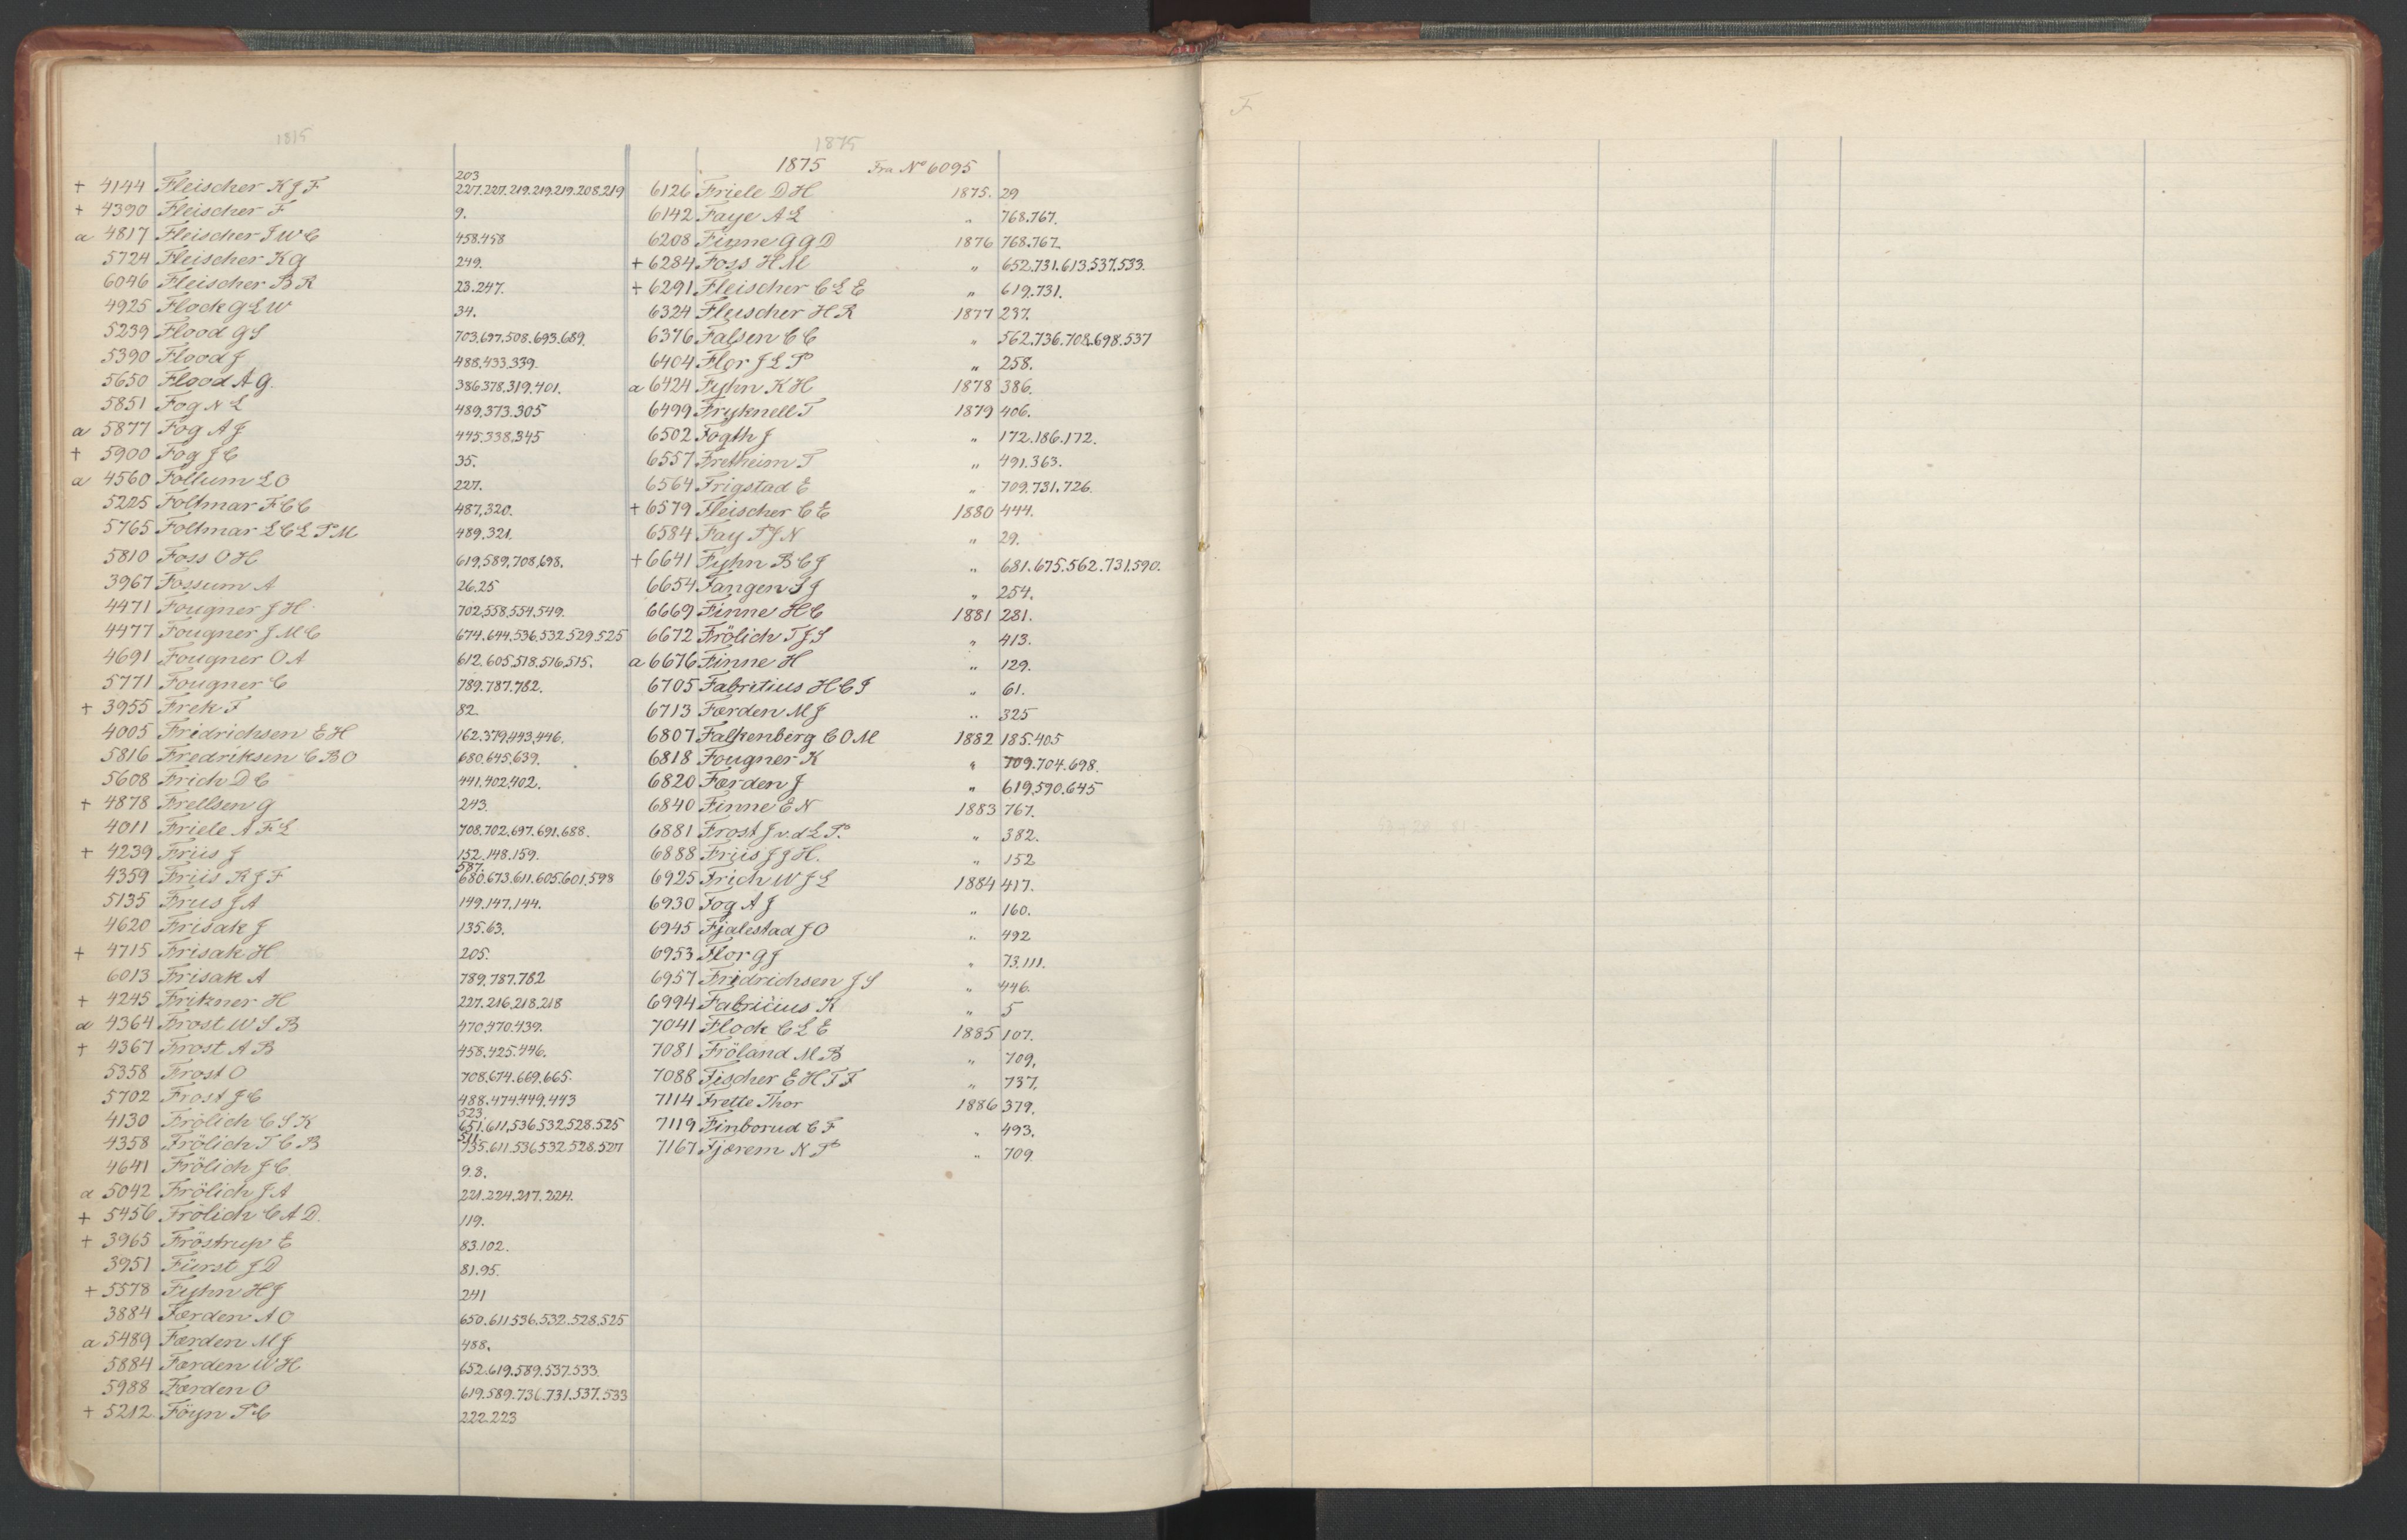 1815
203
+ 4144 Fleischer K J F 227.227.219.219.219.208.219
+ 4390 Fleischer F 9.
a 4817 Fleischer J W C 458.458
5724 Fleischer K G 249.
6046 Fleischer B R 23.247.
4925 Flock G L W 34.
5239 Flood G S 703.697.508.693.689.
5390 Flood J 488.433.339.
5650 Flood A G. 386.378.319.401.
5851 Fog N L 489.373.305
a 5877 Fog A J 445.338.345
+ 5900 Fog J C 35.
a 4560 Follum L O 227.
5225 Foltmar F C C 487.320.
5765 Foltmar L C L P M 489.321.
5810 Foss O H 619.589.708.698.
3967 Fossum A 26.25
4471 Fougner J H 702.558.554.549.
4477 Fougner J M C 674.644.536.532.529.525
4691 Fougner O A 612.605.518.516.515.
5771 Fougner C 789.787.782.
+ 3955 Frek F 82
4005 Fridrichsen E H 162.379.443.446.
5816 Fredriksen C B O 680.645.639.
5608 Frich D C 441.402.402.
+ 4878 Frellsen G 243.
4011 Friele A F L 708.702.697.691.688.
+ 4239 Friis J 152.148.159.
587.
4359 Friis R J F 680.673.611.605.601.598
5135 Frus J A 149.147.144.
4620 Frisak J 135.63.
+ 4715 Frisak H 205.
6013 Frisak A 789.787.782
+ 4245 Frikner H 227.216.218.218
a 4364 Frost W S B 470.470.439.
+ 4367 Frost A B 458.425.446.
5358 Frost O 708.674.669.665.
5702 Frost J C 488.474.449.443
523
4130 Frölich C S K 651.611.536.532.528.525
511.
4358 Frölich T C B 735.611.536.532.528.527
4641 Frölich J C 9.8.
a 5042 Frölich J A 221.224.217.224.
+ 5456 Frölich C A D. 119.
+ 3965 Fröstrup E 83.102.
3951 Fürst J D 81.95.
+ 5578 Fyhn H J 241
3884 Færden A O 650.611.536.532.528.525
a 5489 Færden M J 488.
5884 Færden W H 652.619.589.537.533.
5988 Færden O 619.589.736.731.537.533
+ 5212 Föyn P C 222.223
1875
1875 Fra No 6095
6126 Friele D H 1875. 29
6142 Faye A L " 768.767.
6208 Finne G G D 1876 768.767.
+ 6284 Foss H M " 652.731.613.537.533.
+ 6291 Fleischer C L E " 619.731.
6324 Fleischer H R 1877 237.
6376 Falsen C C " 562.736.708.698.537
6404 Flor J L P " 258.
a 6424 Fyhn K H 1878 386.
6499 Fryknell T 1879 406.
6502 Fogth J " 172.186.172.
6557 Fretheim T " 491.363.
6564 Frigstad E " 709.731.726.
+ 6579 Fleischer C E 1880 444.
6584 Fay P J N " 29.
+ 6641 Fyhn B C J " 681.675.562.731.590.
6654 Fangen S J " 254.
6669 Finne H C 1881 281.
6672 Frölich T J S " 413.
a 6676 Finne H " 129.
6705 Fabritius H C J " 61.
6713 Færden M J " 325
6807 Falkenberg C O M 1882 185.405
6818 Fougner K " 709.704.698.
6820 Færden J " 619.590.645
6840 Finne E N 1883 767.
6881 Frost J v. d L P. " 382.
6888 Friis J J H. " 152
6925 Frich W J L 1884 417.
6930 Fog A J " 160.
6945 Fjalestad J O " 492
6953 Flor G J " 73.111.
6957 Fridrichsen J S " 446.
6994 Fabricius K " 5
7041 Flock C L E 1885 107.
7081 Fröland M B " 709.
7088 Fischer E H T F " 737.
7114 Frette Thor 1886 379.
7119 Finborud C F " 493.
7167 Fjærem N P " 709.
F